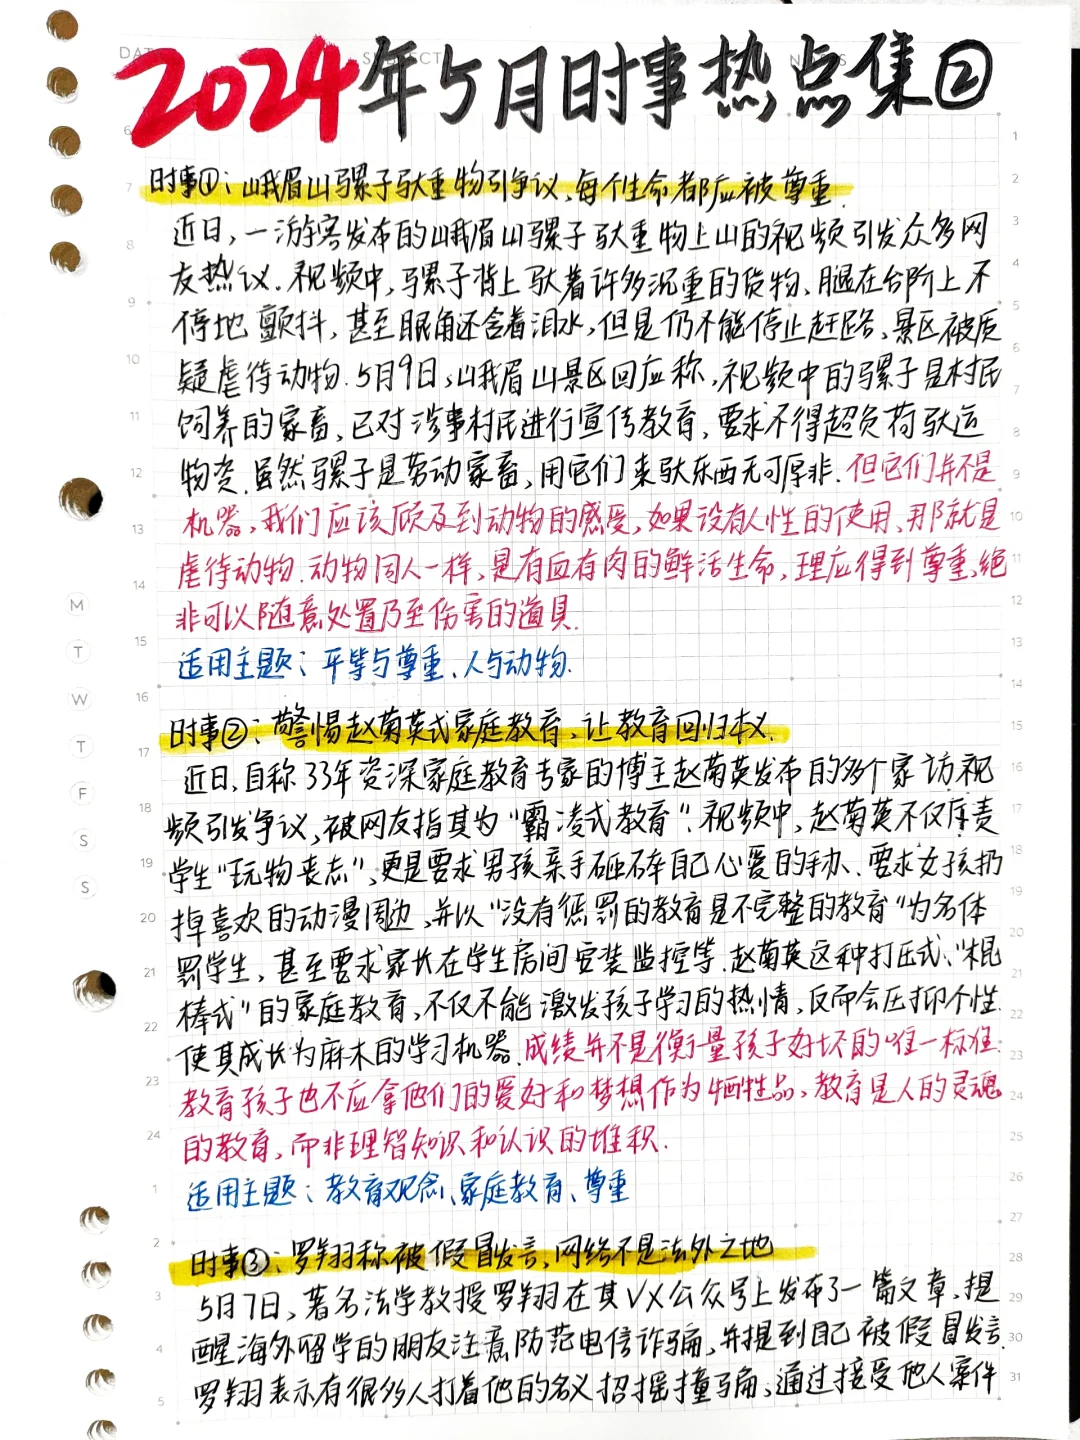 2024年5月时事热点集②
时事①:峨眉山骡子驮重物引争议,每个生命都应被尊重.
近日,一游客发布的峨眉山骡子驮重物上山的视频引发众多网
友热议.视频中,骡子背上驮着许多沉重的货物、腿在台阶上不
停地颤抖,甚至眼角还含着泪水,但是仍不能停止赶路,景区被质
疑虐待动物.5月9日,峨眉山景区回应称,视频中的骡子是村民
饲养的家畜,已对涉事村民进行宣传教育,要求不得超负荷驮运
物资.虽然骡子是劳动家畜,用它们来驮东西无可厚非.但它们并不是
机器,我们应该顾及到动物的感受,如果没有人性的使用,那就是
虐待动物.动物同人一样,是有血有肉的鲜活生命,理应得到尊重,绝
非可以随意处置乃至伤害的道具.
适用主题:平等与尊重、人与动物.
时事②:警惕赵菊英式家庭教育,让教育回归本义.
近日,自称33年资深家庭教育专家的博主赵菊英发布的多个家访视
频引发争议,被网友指其为“霸凌式教育”.视频中,赵菊英不仅斥责
学生“玩物丧志”,更是要求男孩亲手砸碎自己心爱的手办、要求女孩扔
掉喜欢的动漫周边,并以“没有惩罚的教育是不完整的教育”为名体
罚学生,甚至要求家长在学生房间安装监控等.赵菊英这种打压式、“棍
棒式”的家庭教育,不仅不能激发孩子学习的热情,反而会压抑个性.
使其成长为麻木的学习机器.成绩并不是衡量孩子好坏的唯一标准.
教育孩子也不应拿他们的爱好和梦想作为牺牲品,教育是人的灵魂
的教育,而非理智知识和认识的堆积.
适用主题:教育观念、家庭教育、尊重
时事③:罗翔称被假冒发言,网络不是法外之地
5月7日,著名法学教授罗翔在其VX公众号上发布了一篇文章,提
醒海外留学的朋友注意防范电信诈骗,并提到自己被假冒发言.
罗翔表示有很多人打着他的名义招摇撞骗,通过接受他人案件